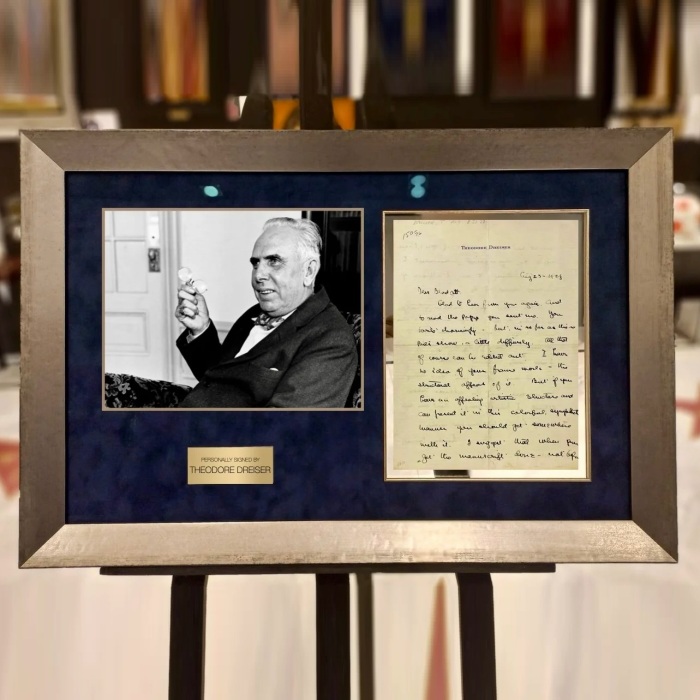 PERSONALLY SIGNED BY
THEODORE DREISER
THEODORE DREISER
Glad to hear from you again. And
to read the pages you sent me. You
write charmingly - but in so far as this
show - a little diffusely. all that
of course can be edited out. I have
no idea of your frame work - the
structural of it. But if you
have an appealing artistic structure and
can present it in this colorful,
manner you should get somewhere
with it. I suggest that when you
get the manuscript done - not